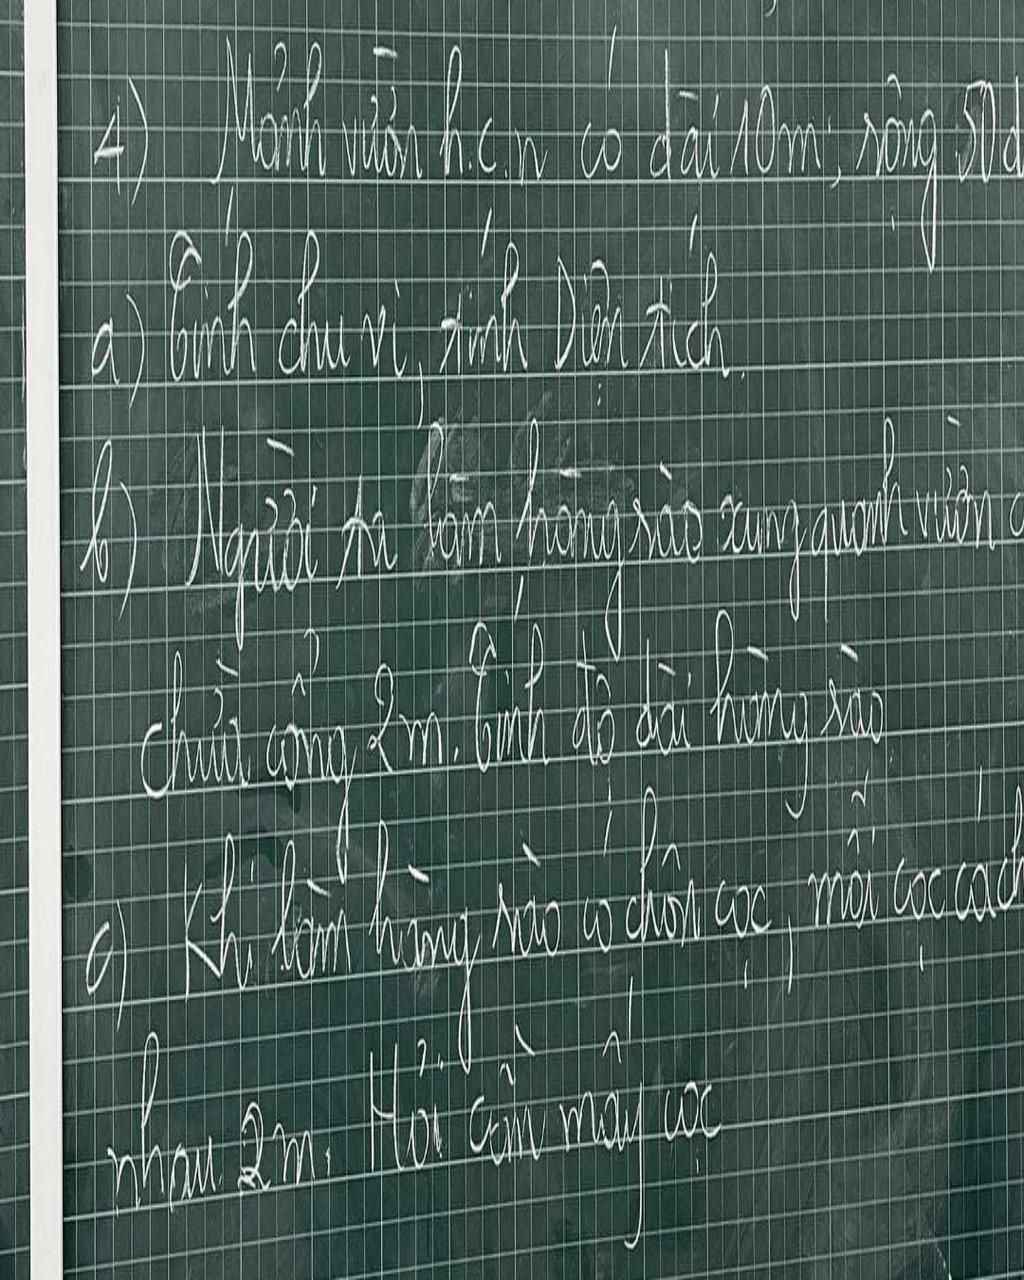 4) Mảnh vườn h.c.n có dài 10m; rộng 50d
a) Tính chu vi, tính Diện tích.
b) Người ta làm hàng rào xung quanh vườn c
chừa cổng 2m. Tính độ dài hàng rào
c) Khi làm hàng rào có chôn cọc, mỗi cọc cách
nhau 2m. Hỏi cần mấy cọc